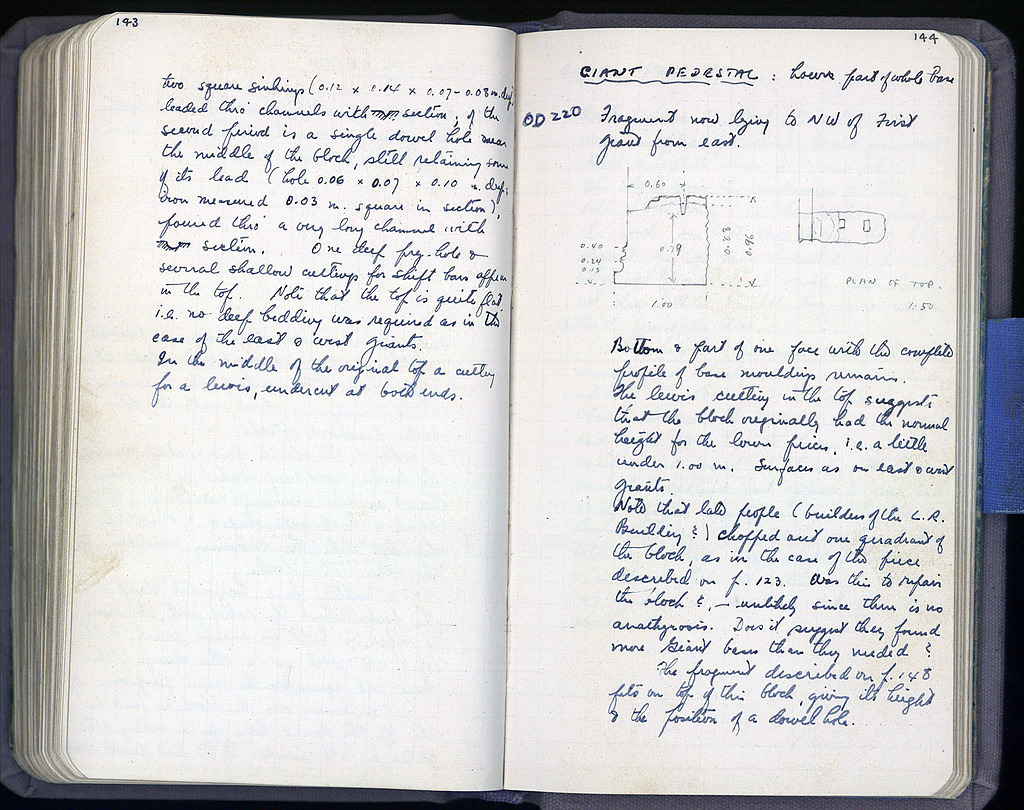 143
two square sinkings (0.12 x 0.14 x 0.07-0.08 m. deep)
leaded thro' channels with section; of the
second period is a single dowel hole near
the middle of the block, still retaining some
of its lead (hole 0.06 x 0.07 x 0.10 m. deep;
iron measured 0.03 m. square in section),
poured thro' a very long channel with
section. One deep pry-hole &
several shallow cuttings for shift bars appear
in the top. Note that the top is quite flat
i.e. no deep bedding was required as in the
case of the east & west giants.
In the middle of the original top a cutting
for a lewis, undercut at both ends.
144
GIANT PEDESTAL : lower part of whole base
OD 220
Fragment now lying to NW of First
giant from east.
0.60
0.40
0.24
0.13
0.79
0.88
0.96
1.00
PLAN OF TOP.
1:50
Bottom & part of one face with the complete
profile of base mouldings remains.
The lewis cutting in the top suggests
that the block originally had the normal
height for the lower pieces, i.e. a little
under 1.00 m. Surfaces as on east & west
giants.
Note that late people (builders of the L.R.
Building ?) chopped out one quadrant of
the block, as in the case of the piece
described on p. 123. Was this to repair
the block ?, — unlikely since there is no
anathyrosis. Does it suggest they found
more Giant bases than they needed ?
The fragment described on p. 148
fits on top of this block, giving its height
& the position of a dowel hole.